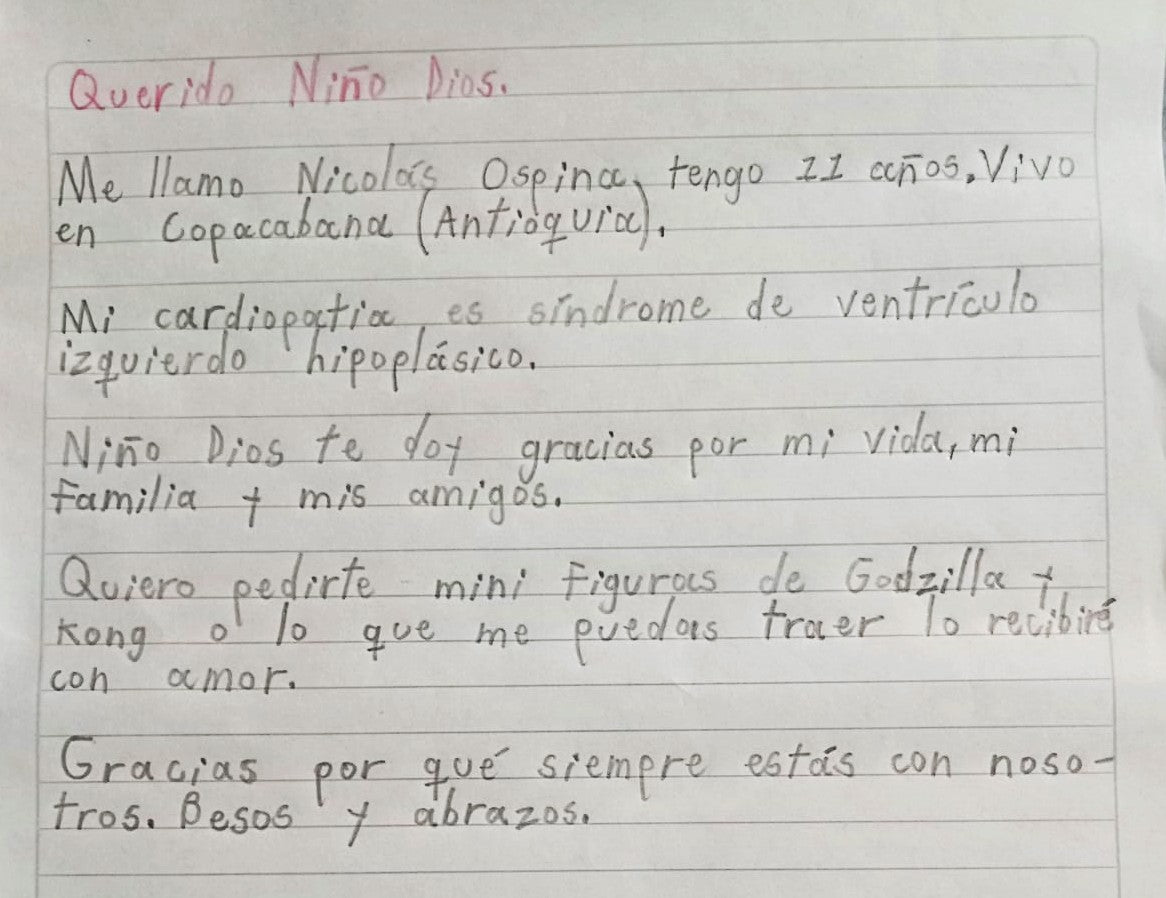 Querido Niño Dios.
Me llamo Nicolás Ospina, tengo 11 años. Vivo
en Copacabana (Antioquia).
Mi cardiopatia es síndrome de ventrículo
izquierdo hipoplásico.
Niño Dios te doy gracias por mi vida, mi
familia y mis amigos.
Quiero pedirte mini figuras de Godzilla y
Kong o lo que me puedas traer lo recibiré
con amor.
Gracias por qué siempre estás con noso-
tros. Besos y abrazos.